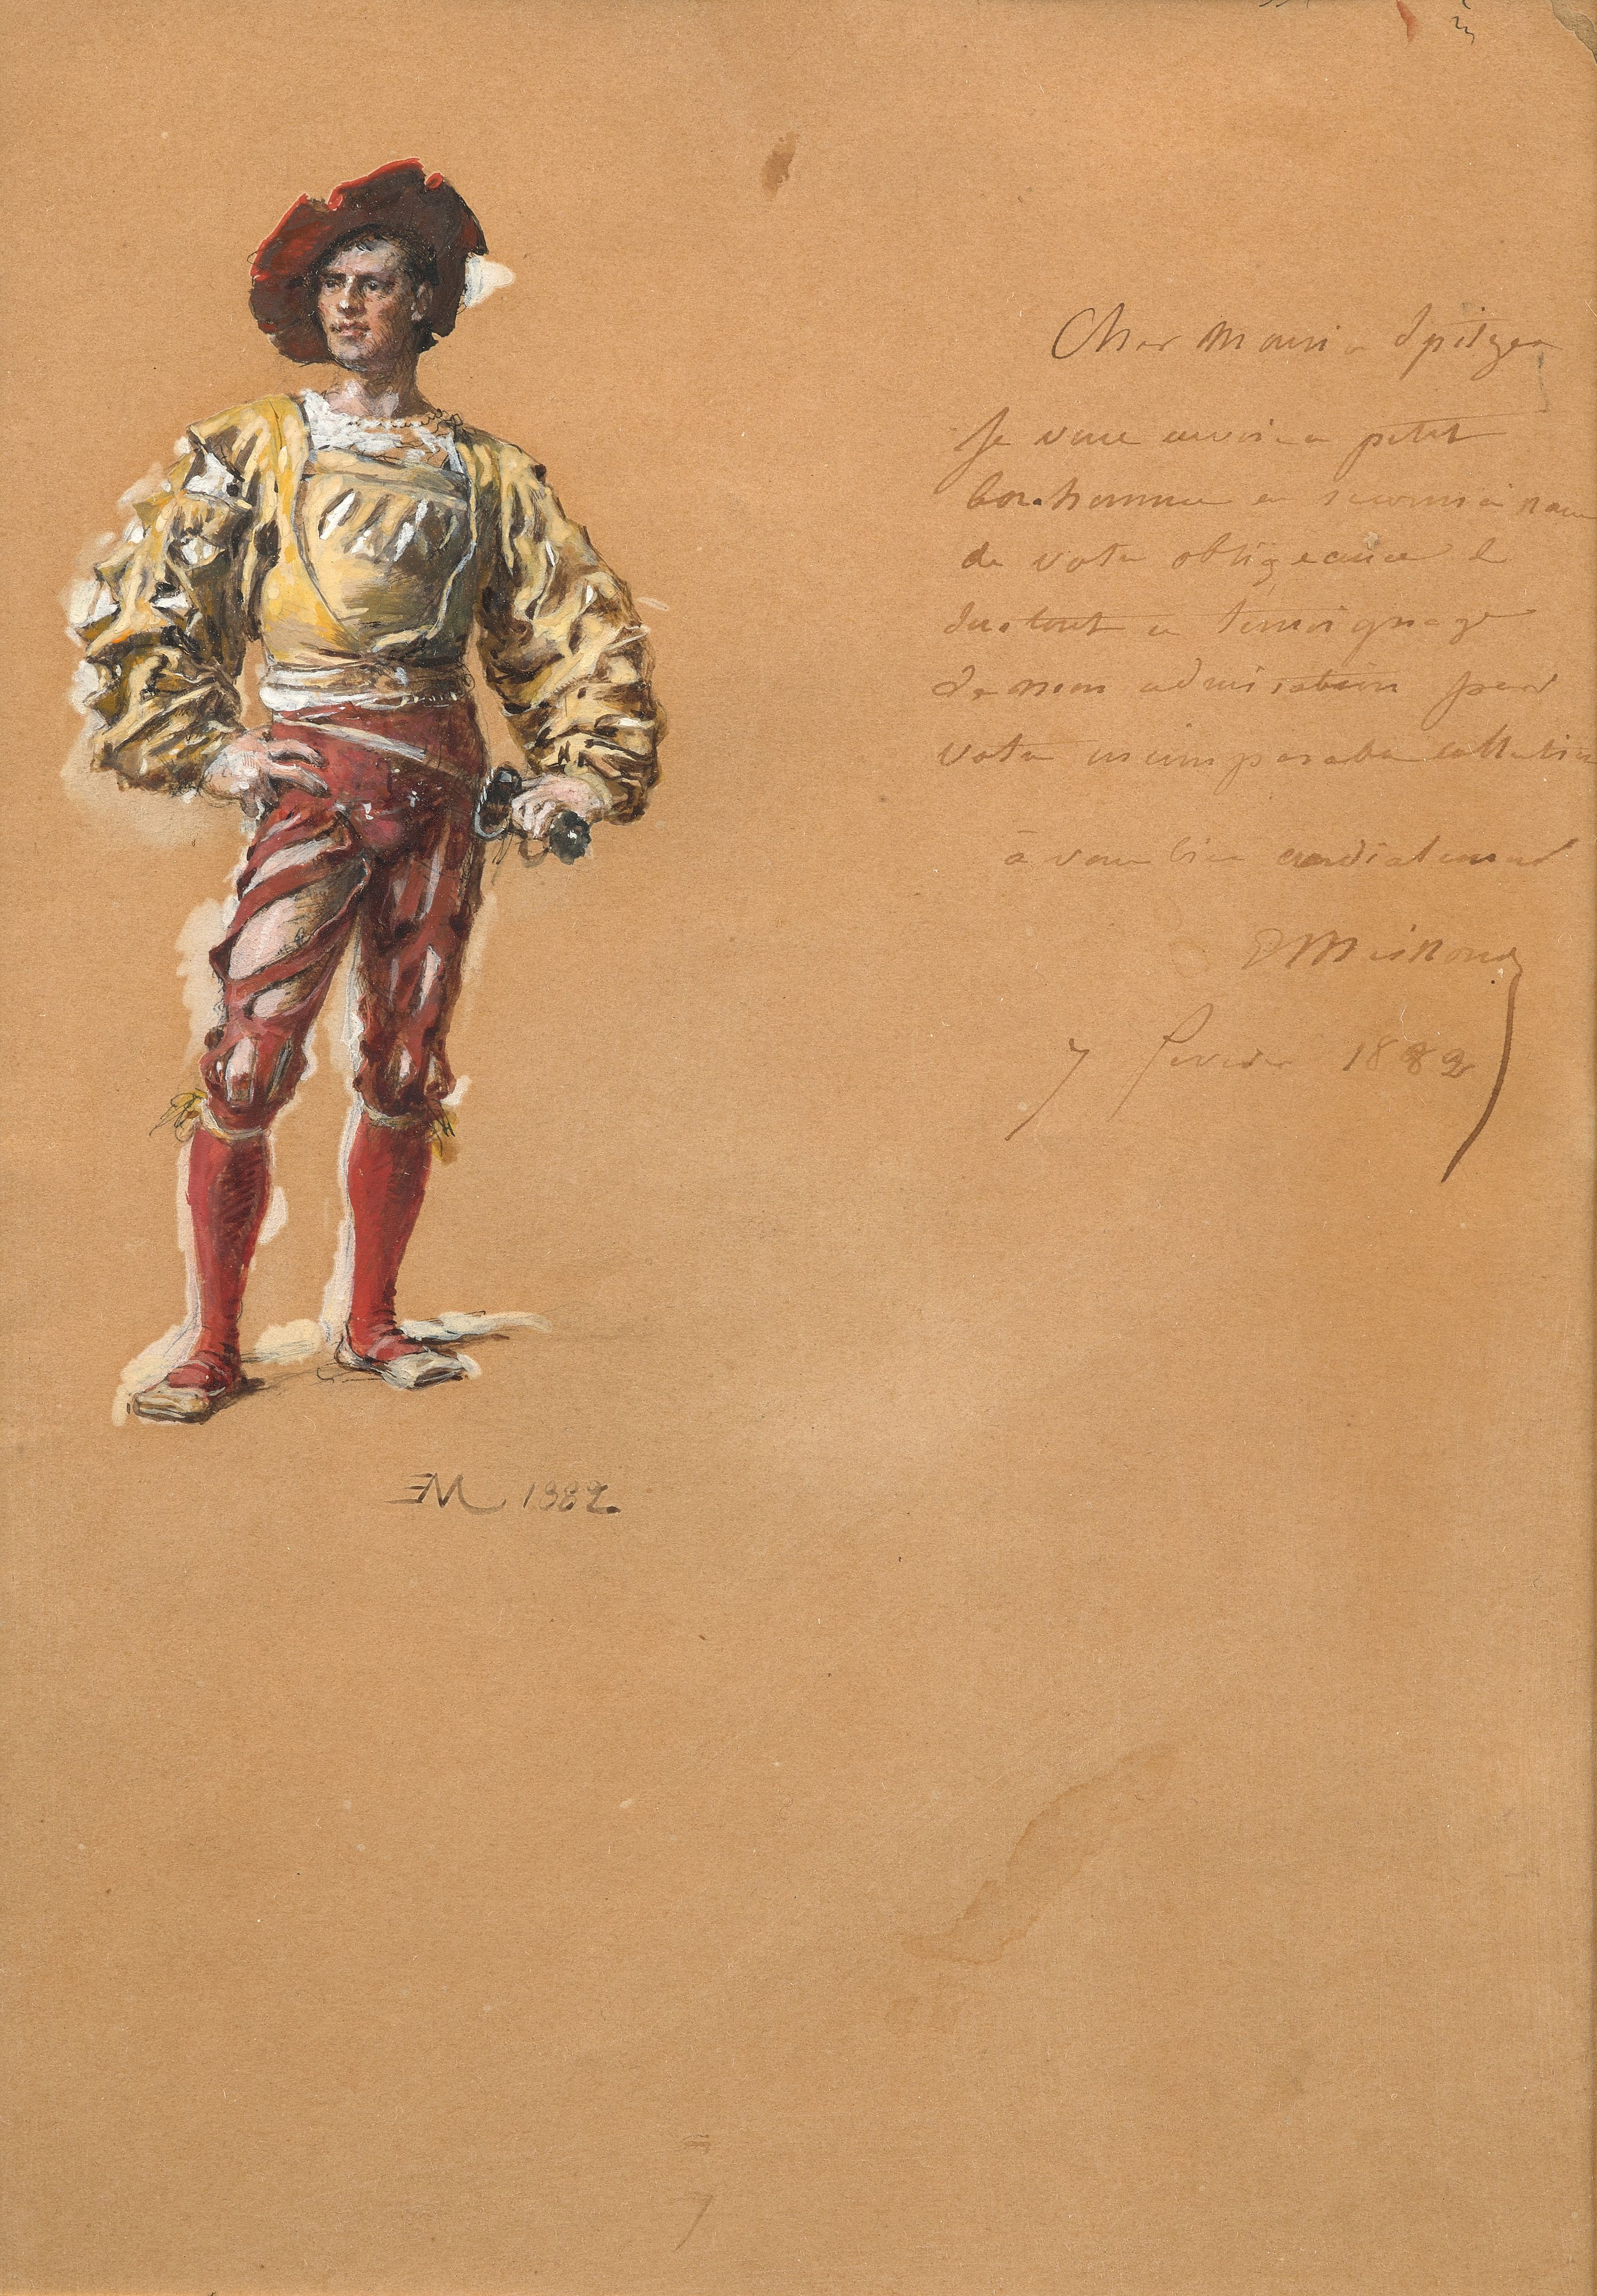 Cher Monsieur Spitzer
Je vous envoie ce petit
bonhomme en
de votre obligeance et
surtout en témoignage
de mon admiration pour
votre incomparable collection
à vous bien cordialement
EMeissonier
7 février 1882
EM 1882